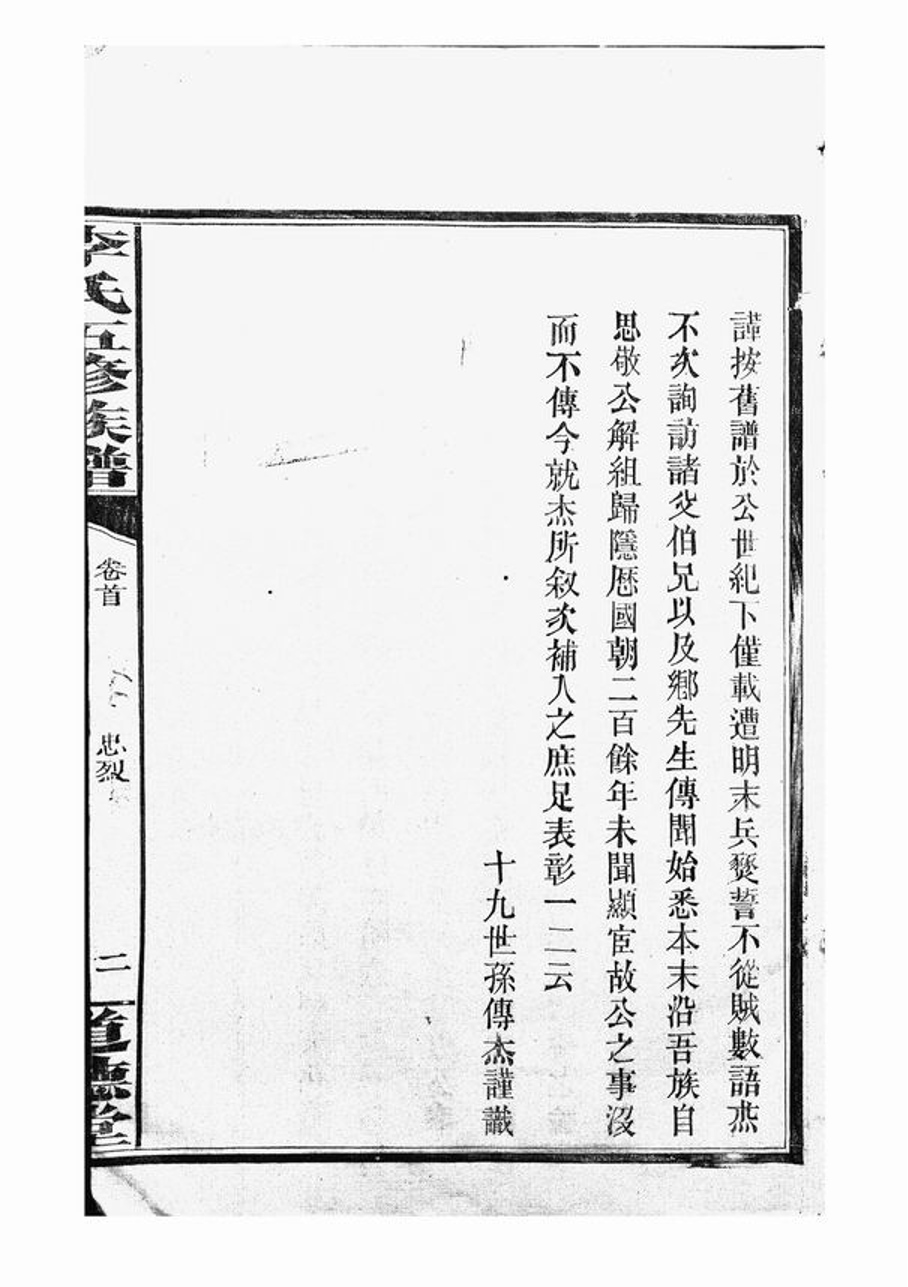 謹按舊譜於公世紀下僅載遭明末兵燹誓不從賊數語焘
不次詢訪諸父伯兄以及鄉先生傳聞始悉本末沿吾族自
思敬公解組歸隱歷國朝二百餘年未聞顯宦故公之事沒
而不傳今就杰所叙次補入之庶足表彰一二云
十九世孫傳杰謹識
李氏五修族譜
卷首
忠烈
二
道德堂